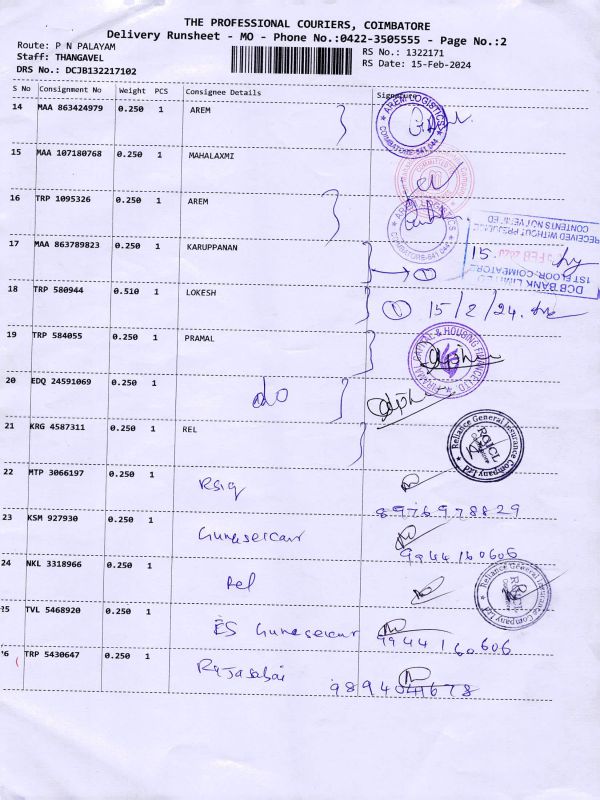 THE PROFESSIONAL COURIERS, COIMBATORE
Delivery Runsheet - MO - Phone No.:0422-3505555 - Page No.:2
Route: P N PALAYAM
RS No.: 1322171
Staff: THANGAVEL
RS Date: 15-Feb-2024
DRS No.: DCJB132217102
S No Consignment No Weight PCS Consignee Details Signature
14 MAA 863424979 0.250 1 AREM
AREM LOGISTICS
COIMBATORE-641 044
15 MAA 107180768 0.250 1 MAHALAXMI
16 TRP 1095326 0.250 1 AREM
17 MAA 863789823 0.250 1 KARUPPANAN
DCB BANK LIMITED
1ST FLOOR-COIMBATORE
15 FEB 2024
RECEIVED WITHOUT PREJUDICE
CONTENTS NOT VERIFIED
18 TRP 580944 0.510 1 LOKESH 1 15/2/24
19 TRP 584055 0.250 1 PRAMAL
PIRAMAL CAPITAL & HOUSING FINANCE LTD
20 EDQ 24591069 0.250 1 do
21 KRG 4587311 0.250 1 REL
Reliance General Insurance Company Ltd
RGICL
22 MTP 3066197 0.250 1 8976978829
23 KSM 927930 0.250 1 Gunasercar 9944160606
24 NKL 3318966 0.250 1 Rel
Reliance General Insurance Company Ltd
25 TVL 5468920 0.250 1 ES Gunasercar 9944160606
26 TRP 5430647 0.250 1 Rajasabai 9894041678